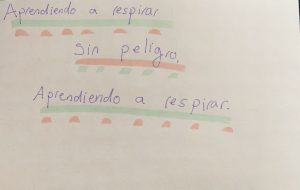 Aprendiendo a respirar
Sin peligro.
Aprendiendo a respirar.